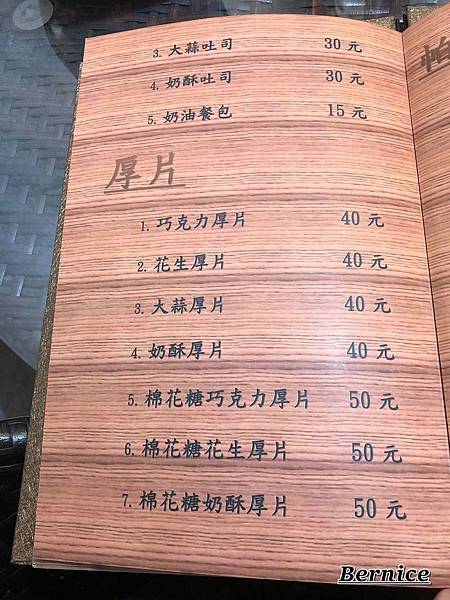 3. 大蒜吐司 30 元
4. 奶酥吐司 30 元
5. 奶油餐包 15 元
厚片
1. 巧克力厚片 40 元
2. 花生厚片 40 元
3. 大蒜厚片 40 元
4. 奶酥厚片 40 元
5. 棉花糖巧克力厚片 50 元
6. 棉花糖花生厚片 50 元
7. 棉花糖奶酥厚片 50 元
帕
Bernice